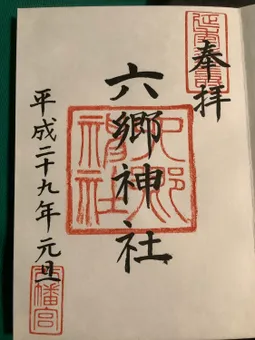 奉拝
六郷神社
平成二十九年元旦
六郷神社
八幡宮